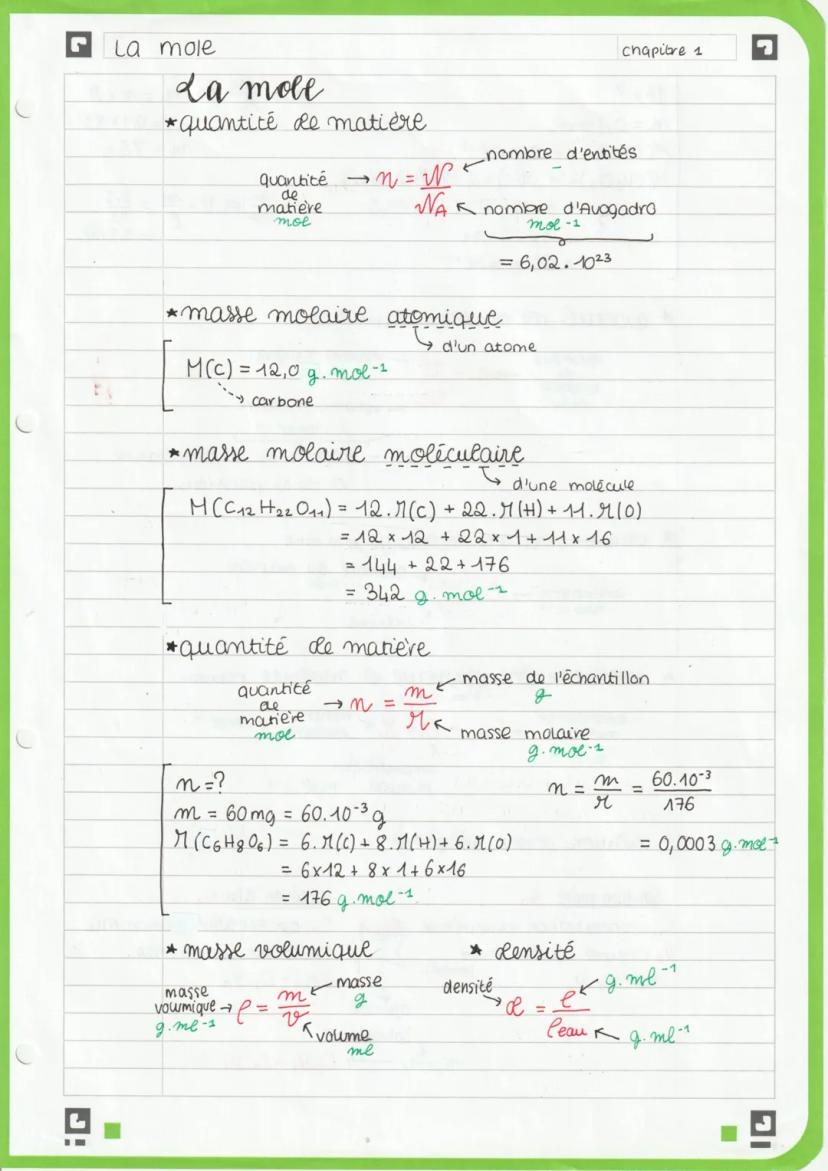 La mole
chapitre 1
La mole
*quantité de matière
quantité de matière mol → n = N/NA
nombre d'entités
nombre d'Avogadro
mol⁻¹
= 6,02.10²³
*masse molaire atomique
d'un atome
M(C) = 12,0 g.mol⁻¹
carbone
*masse molaire moléculaire
d'une molécule
M(C₁₂H₂₂O₁₁) = 12.M(C) + 22.M(H) + 11.M(O)
= 12 × 12 + 22 × 1 + 11 × 16
= 144 + 22 + 176
= 342 g.mol⁻¹
*quantité de matière
quantité de matière mol → n = m/M
masse de l'échantillon
g
masse molaire
g.mol⁻¹
n = ?
m = 60mg = 60.10⁻³ g
M(C₆H₈O₆) = 6.M(C) + 8.M(H) + 6.M(O)
= 6×12 + 8×1 + 6×16
= 176 g.mol⁻¹
n = m/M = 60.10⁻³/176
= 0,0003 g.mol⁻¹
* masse volumique
masse volumique g.ml⁻¹ → ρ = m/v
masse
g
volume
ml
* densité
densité → d = ρ/ρeau
g.ml⁻¹
g.ml⁻¹